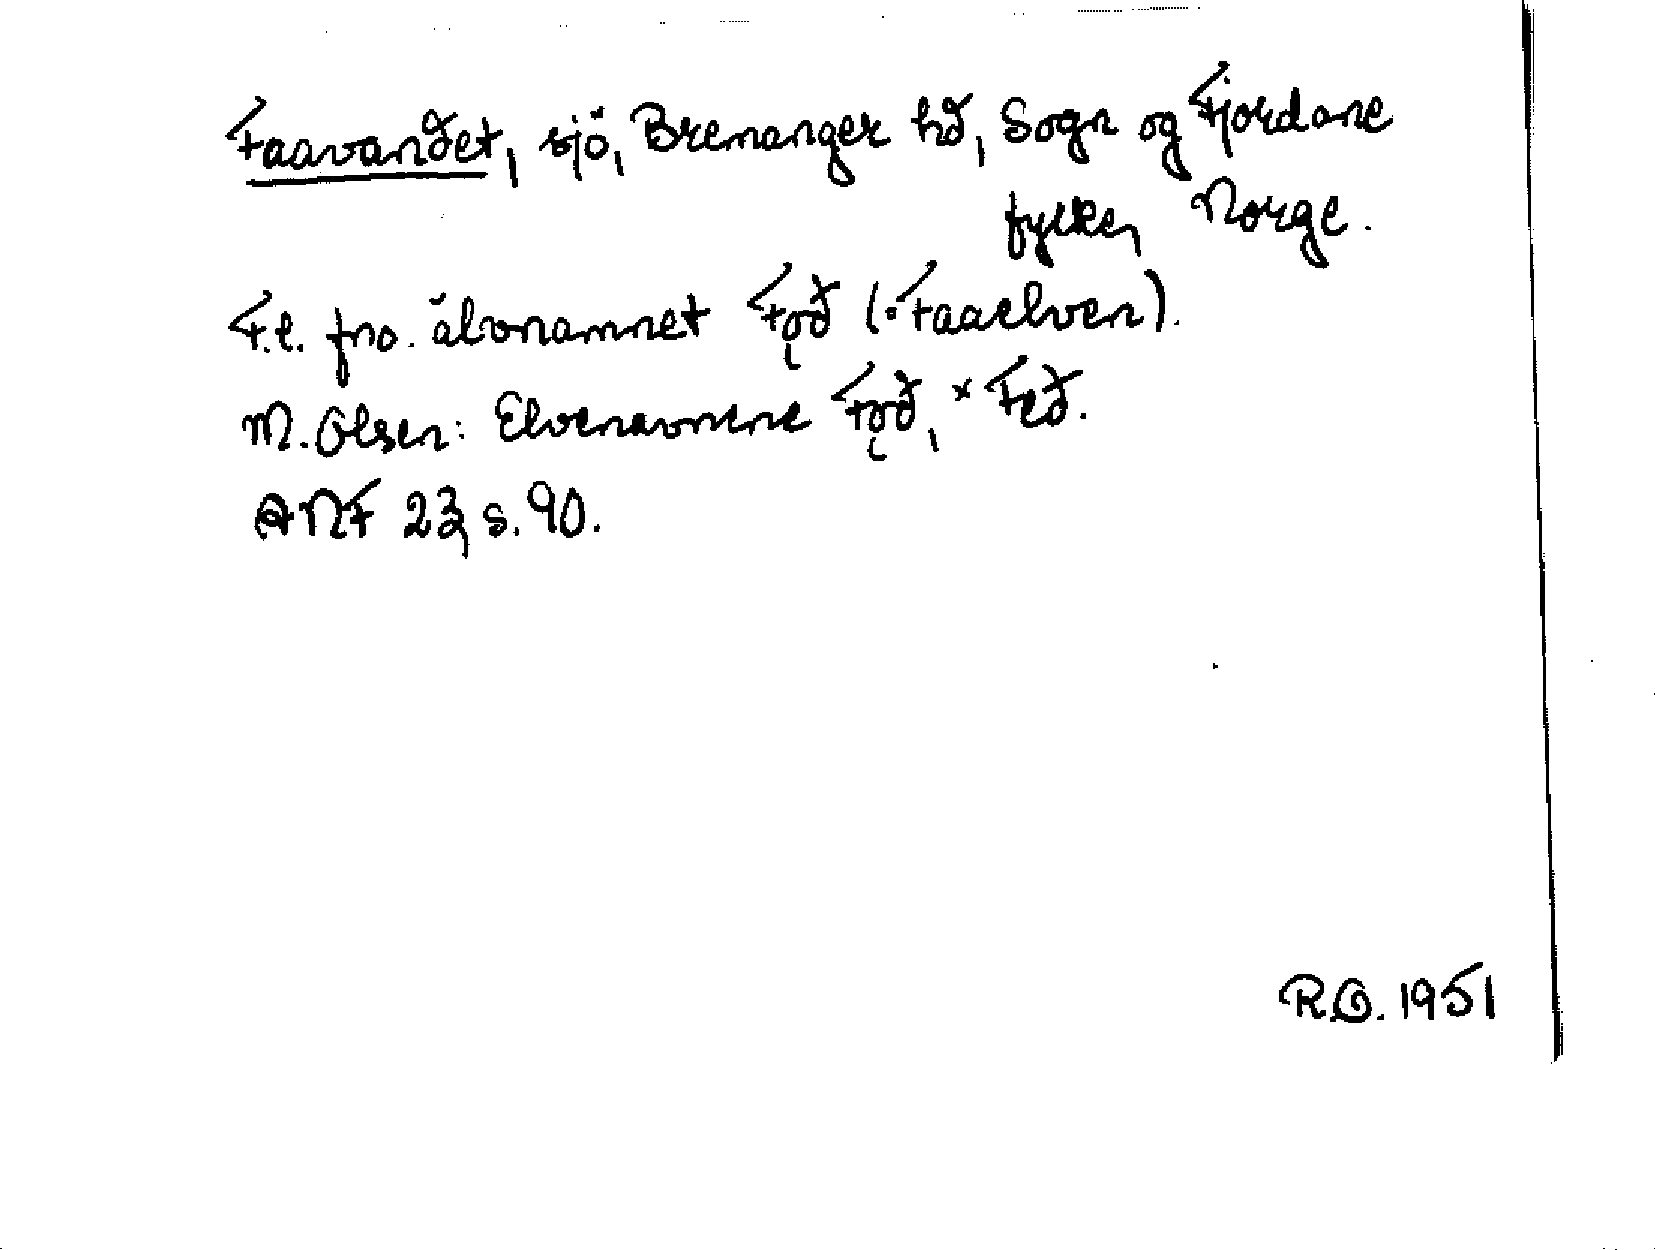 Faavandet, sjö, Bremanger hd, Sogn og Fjordane
fylke, Norge.
F.l. fno. älvnamnet Fǫð (: Faaelven).
M. Olsen: Elvenavnene Fǫð, *Feð.
ANF 23, s. 90.
R.O. 1951